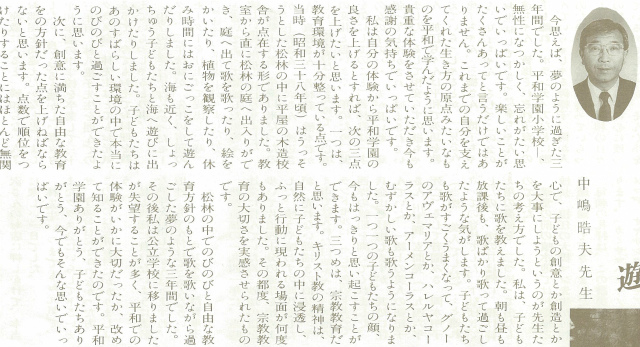 遊
中嶋晧夫先生
今思えば、夢のように過ぎた三
年間でした。平和学園小学校―、
無性になつかしく、忘れがたい思
いでいっぱいです。楽しいことが
たくさんあってと言うだけではあ
りません。これまでの自分を支え
てくれた生き方の原点みたいなも
のを平和で学んだように思います。
貴重な体験をさせていただき今も
感謝の気持ちでいっぱいです。
私は自分の体験から平和学園の
良さを上げるとすれば、次の三点
を上げたいと思います。一つは、
教育環境が十分整っている点です。
当時（昭和三十八年頃）はうっそ
うとした松林の中に平屋の木造校
舎が点在する形でありました。教
室から直に松林の庭へ出入りがで
き、庭へ出て歌を歌ったり、絵を
かいたり、植物を観察したり、休
み時間にはおにごっこをして遊ん
だりしました。海も近く、しょっ
ちゅう子どもたちと海へ遊びに出
かけたりしました。子どもたちは
あのすばらしい環境の中で本当に
のびのびと過ごすことができたよ
うに思います。
次に、創意に満ちた自由な教育
をの方針だった点を上げねばなら
ないと思います。点数で順位をつ
けたりすることにはほとんど無関
心で、子どもの創意とか創造とか
を大事にしようというのが先生た
ちの考え方でした。私は、子ども
たちに歌を教えました。朝も昼も
放課後も、歌ばかり歌って過ごし
たような気がします。子どもたち
も歌がすごくうまくなって、グノー
のアヴェマリアとか、ハレルヤコー
ラスとか、アーメンコーラスとか、
むずかしい歌も歌うようになりま
した。一つ一つの子どもたちの顔、
今もはっきりと思い起こすことが
できます。三つめは、宗教教育だ
と思います。キリスト教の精神は、
自然に子どもたちの中に浸透し、
ふっと行動に現われる場面が何度
もありました。その都度、宗教教
育の大切さを実感させられたもの
です。
松林の中でのびのびと自由な教
育方針のもとで歌を歌いながら過
ごした夢のような三年間でした。
その後私は公立学校に移りました
が失望することが多く、平和での
体験がいかに大切だったか、改め
て知ることができたのです。平和
学園ありがとう、子どもたちあり
がとう、今でもそんな思いでいっ
ぱいです。